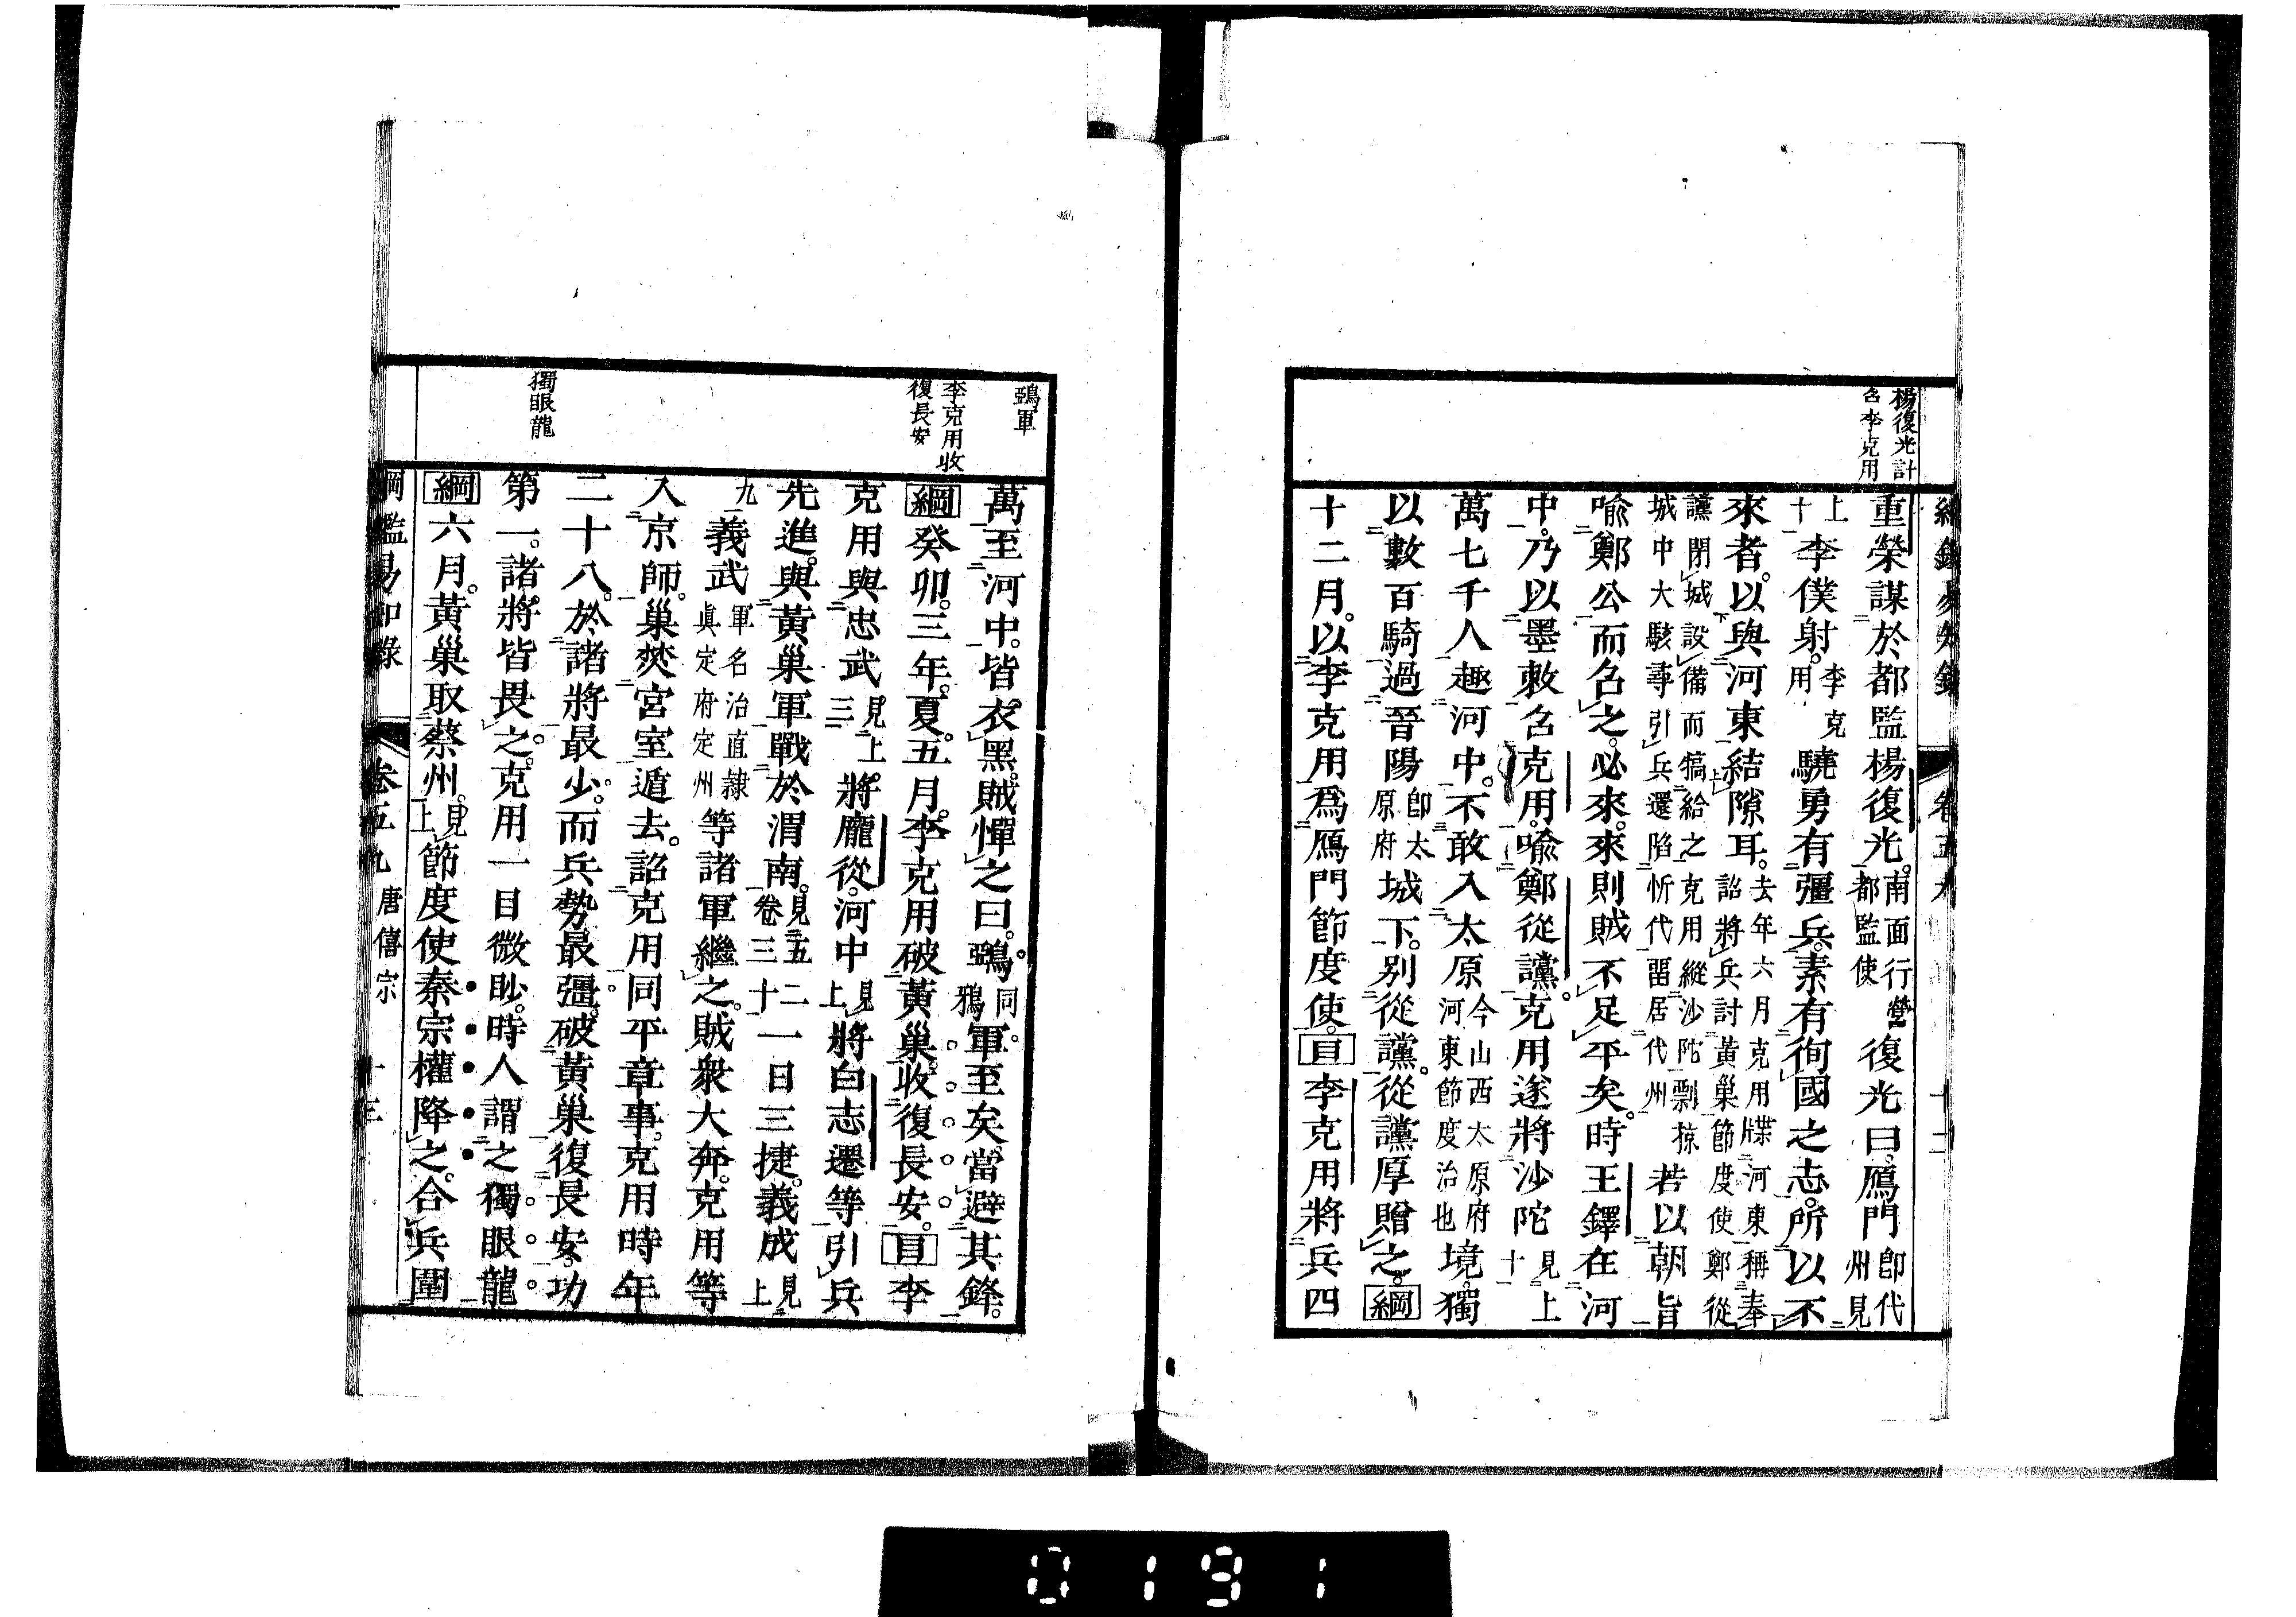 楊復光計
召李克用
重榮謀於都監楊復光。南面行營都監使復光曰。鴈門即代州見
上十李僕射。李克用驍勇有彊兵。素有徇國之志。所以不
來者。以與河東結隙耳。去年六月克用牒河東稱奉詔將兵討黃巢節度使鄭從
讜閉城設備而犒給之克用縱沙陀剽掠城中大駭尋引兵還陷忻代留居代州若以朝旨
喻鄭公而召之。必來。來則賊不足平矣。時王鐸在河
中。乃以墨敕召克用。喻鄭從讜。克用遂將沙陀見上十一
萬七千人趣河中。不敢入太原今山西太原府河東節度治也境。獨
以數百騎過晉陽即太原府城下。別從讜。從讜厚贈之。綱
十二月。以李克用爲鴈門節度使。目李克用將兵四
卷五九
十二
鵶軍
李克用收
復長安
獨眼龍
萬至河中。皆衣黑。賊憚之曰。鵶同鴉軍至矣。當避其鋒。
綱癸卯。三年。夏。五月。李克用破黃巢。收復長安。目李
克用與忠武。見上三將龐從。河中見上將白志遷等引兵
先進。與黃巢軍戰於渭南。見五卷三二十一日三捷。義成見上
九義武軍名治直隸眞定府定州等諸軍繼之。賊衆大奔。克用等
入京師。巢焚宮室遁去。詔克用同平章事。克用時年
二十八。於諸將最少。而兵勢最彊。破黃巢復長安。功
第一。諸將皆畏之。克用一目微眇。時人謂之獨眼龍
綱六月。黃巢取蔡州。見上節度使秦宗權降之。合兵圍
綱鑑易知錄 卷五九 唐僖宗 十三